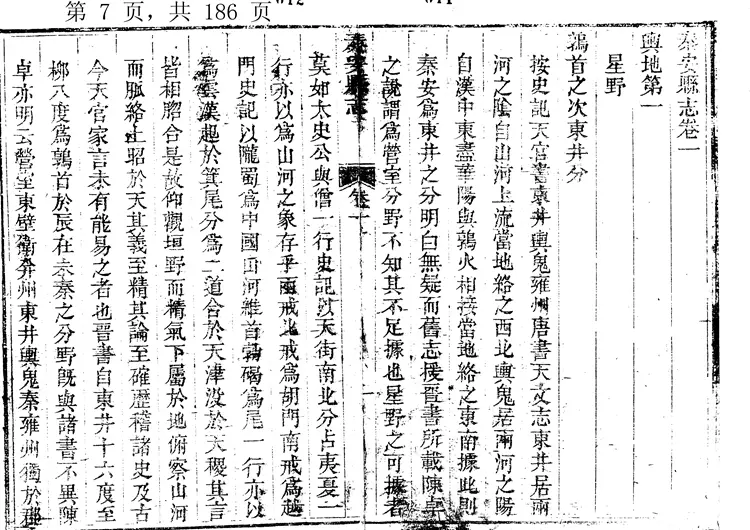 第 7 页，共 186 页
秦安縣志卷一
輿地第一
星野
鶉首之次東井分
按史記天官書東井輿鬼雍州唐書天文志東井居兩
河之陰自山河上流當地絡之西北輿鬼居兩河之陽
自漢中東盡華陽與鶉火相接當地絡之東南據此則
秦安爲東井之分明白無疑而舊志援晉書所載陳卓
之說謂爲營室分野不知其不足據也星野之可據者
秦安縣志 卷一 一
莫如太史公與僧一行史記以天街南北分占夷夏一
行亦以爲山河之象存乎兩戒北戒爲胡門南戒爲越
門史記以隴蜀爲中國山河維首勃碣爲尾一行亦以
爲雲漢起於箕尾分爲二道合於天津没於天稷其言
皆相脗合是故仰觀垣野而精氣下屬於地俯察山河
而脈絡上昭於天其義至精其論至確歷稽諸史及古
今天官家言未有能易之者也晉書自東井十六度至
柳八度爲鶉首於辰在未秦之分野旣與諸書不異陳
卓亦明云營室東壁衛并州東井輿鬼秦雍州獨於郡